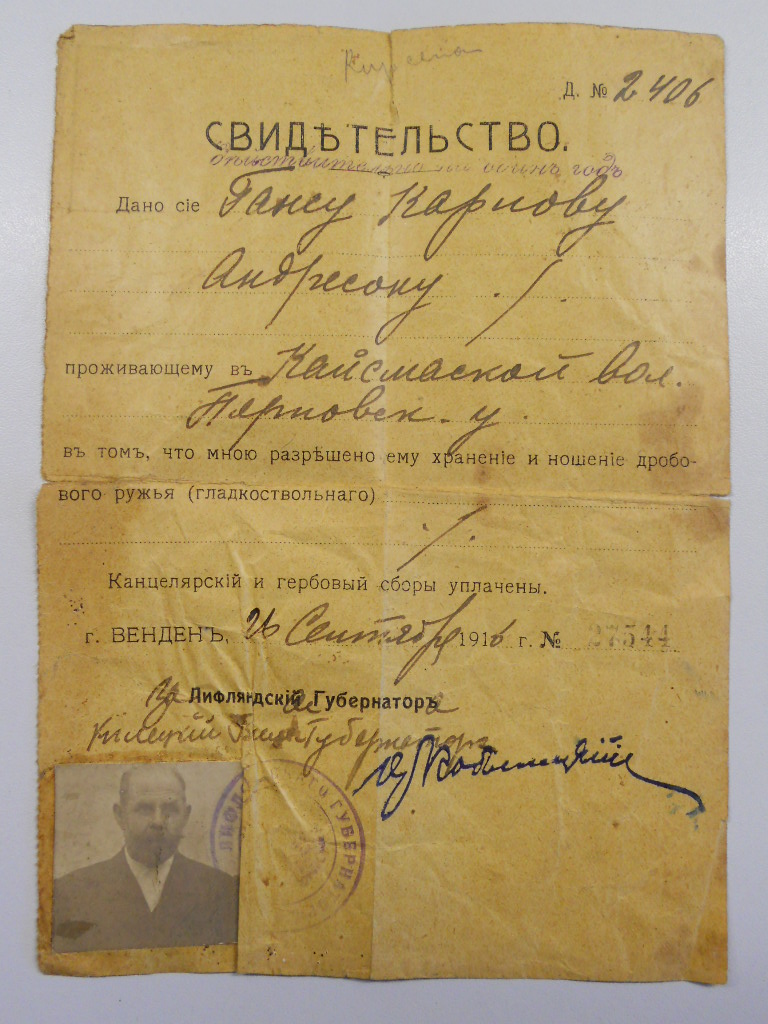 Д. № 2406
СВИДѢТЕЛЬСТВО.
дѣйствительно на одинъ годъ
Дано сіе Гансу Карлову
Андресону ./.
проживающему въ Кайсмаской вол.
Перновск. у.
въ томъ, что мною разрѣшено ему храненіе и ношеніе дробо-
вого ружья (гладкоствольнаго)
./.
Канцелярскій и гербовый сборы уплачены.
г. ВЕНДЕНЪ, 26 Сентября 1916 г. № 27544
За Лифляндскій Губернаторъ а
Губернаторъ
ГУБЕРНА